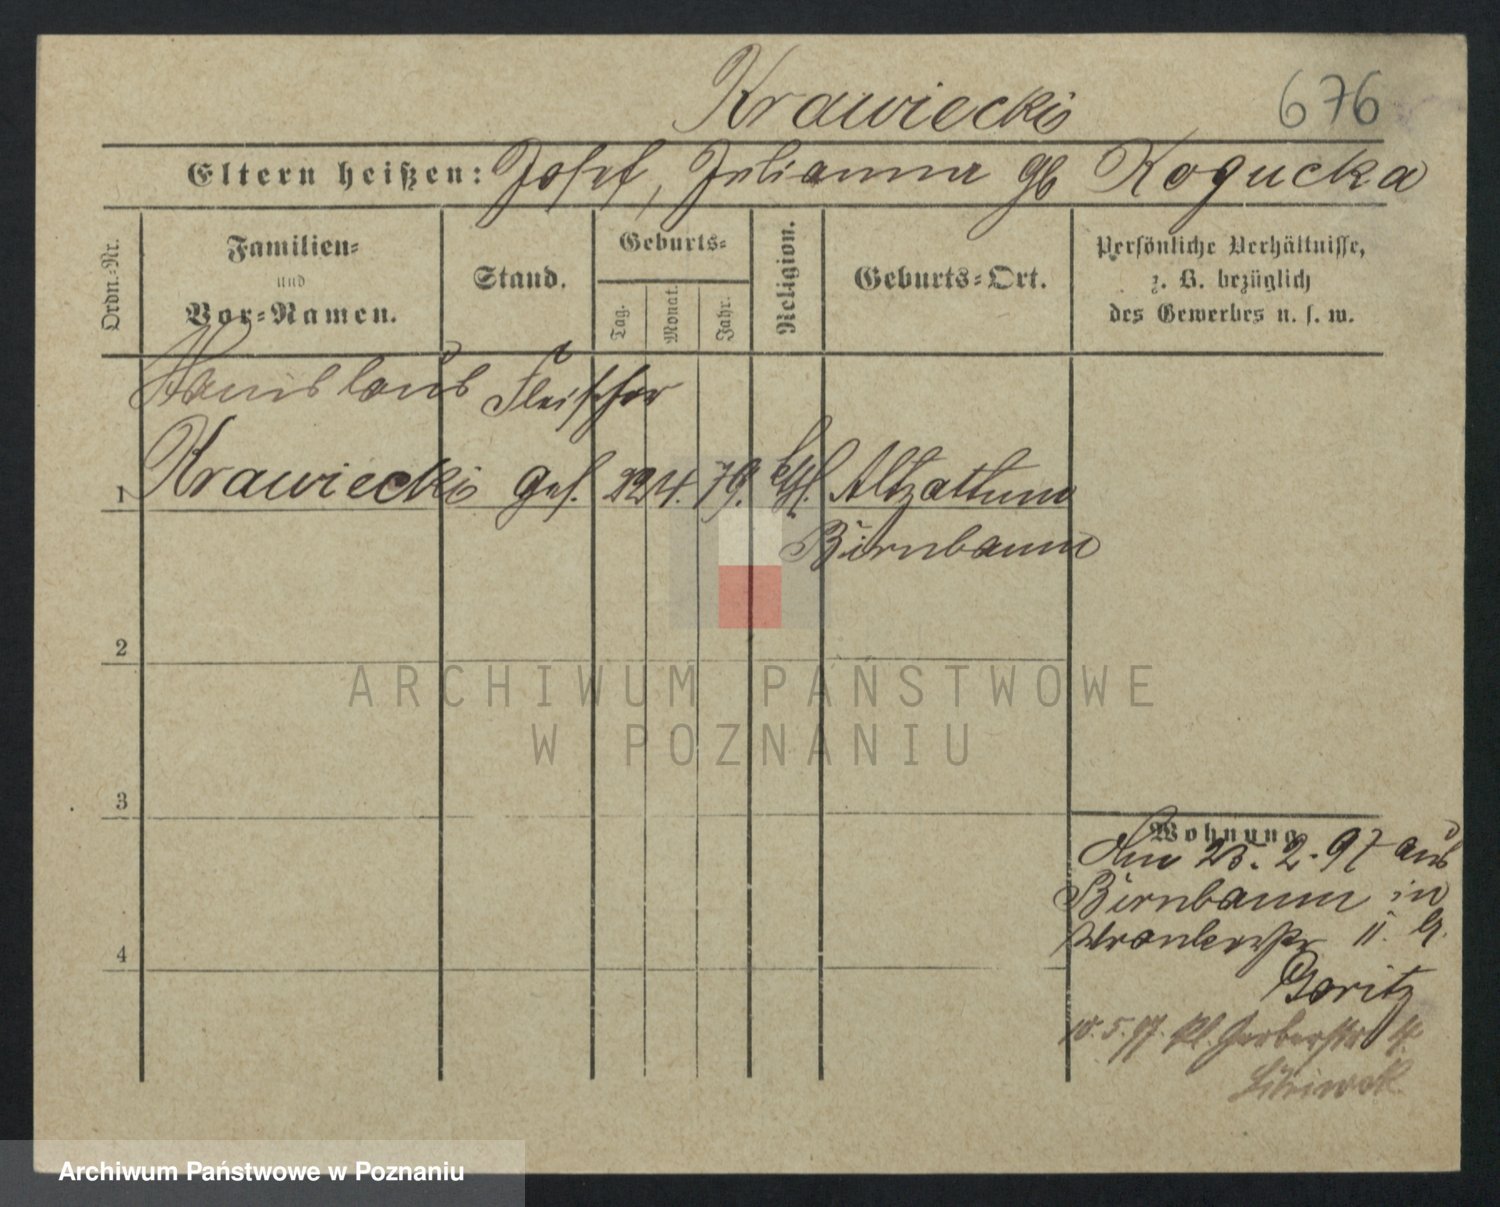 Krawiecki
676
Eltern heißen: Josef, Julianna gb Kogucka
Ordn.-Nr.
Familien-
und
Vor-Namen.
Stand.
Geburts-
Tag.
Monat.
Jahr.
Religion.
Geburts-Ort.
Persönliche Verhältnisse,
z. B. bezüglich
des Gewerbes u. s. w.
Stanislaus Fleischer
1 Krawiecki ges. 22 4. 79. kth. Altzattum
Birnbaum
2
ARCHIWUM PAŃSTWOWE
W POZNANIU
3
Wohnung
Am 23. 2. 97 aus
Birnbaum in
Wronkerstr II. G.
4
Goritz
10. 5. 97. Kl. Gerberstr 4.
Archiwum Państwowe w Poznaniu